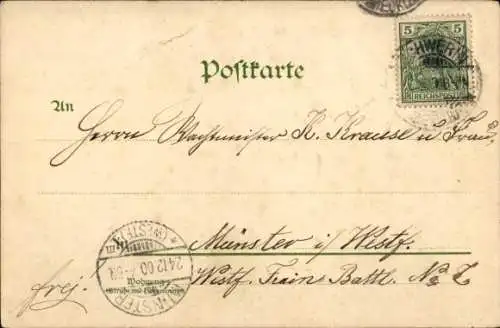 5 5
SCHWERIN
REICHSPOST
Postkarte
An
Herrn Wachtmeister K. Krause u Frau,
Münster i/ Westf.
Westf. Train Batl. No. 7
frei.
MÜNSTER (WESTF.)
24.12.00
Wohnung